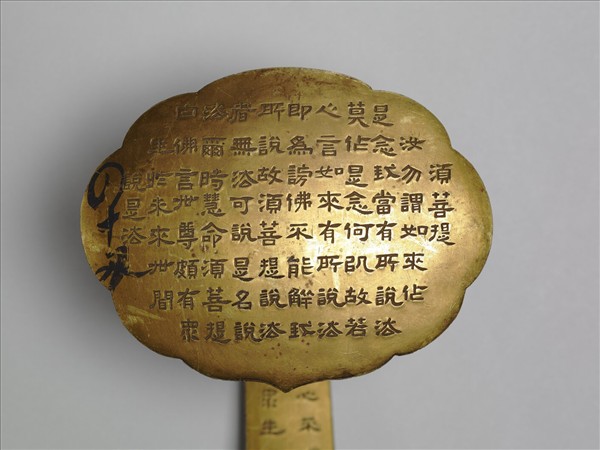 須菩提
汝勿謂如來作
是念我當有所說法
莫作是念何以故若
人言如來有所說法
即為謗佛不能解我
所說故須菩提說法
者無法可說是名說
法爾時慧命須菩提
白佛言世尊頗有眾
生於未來世聞
說是法
眾生